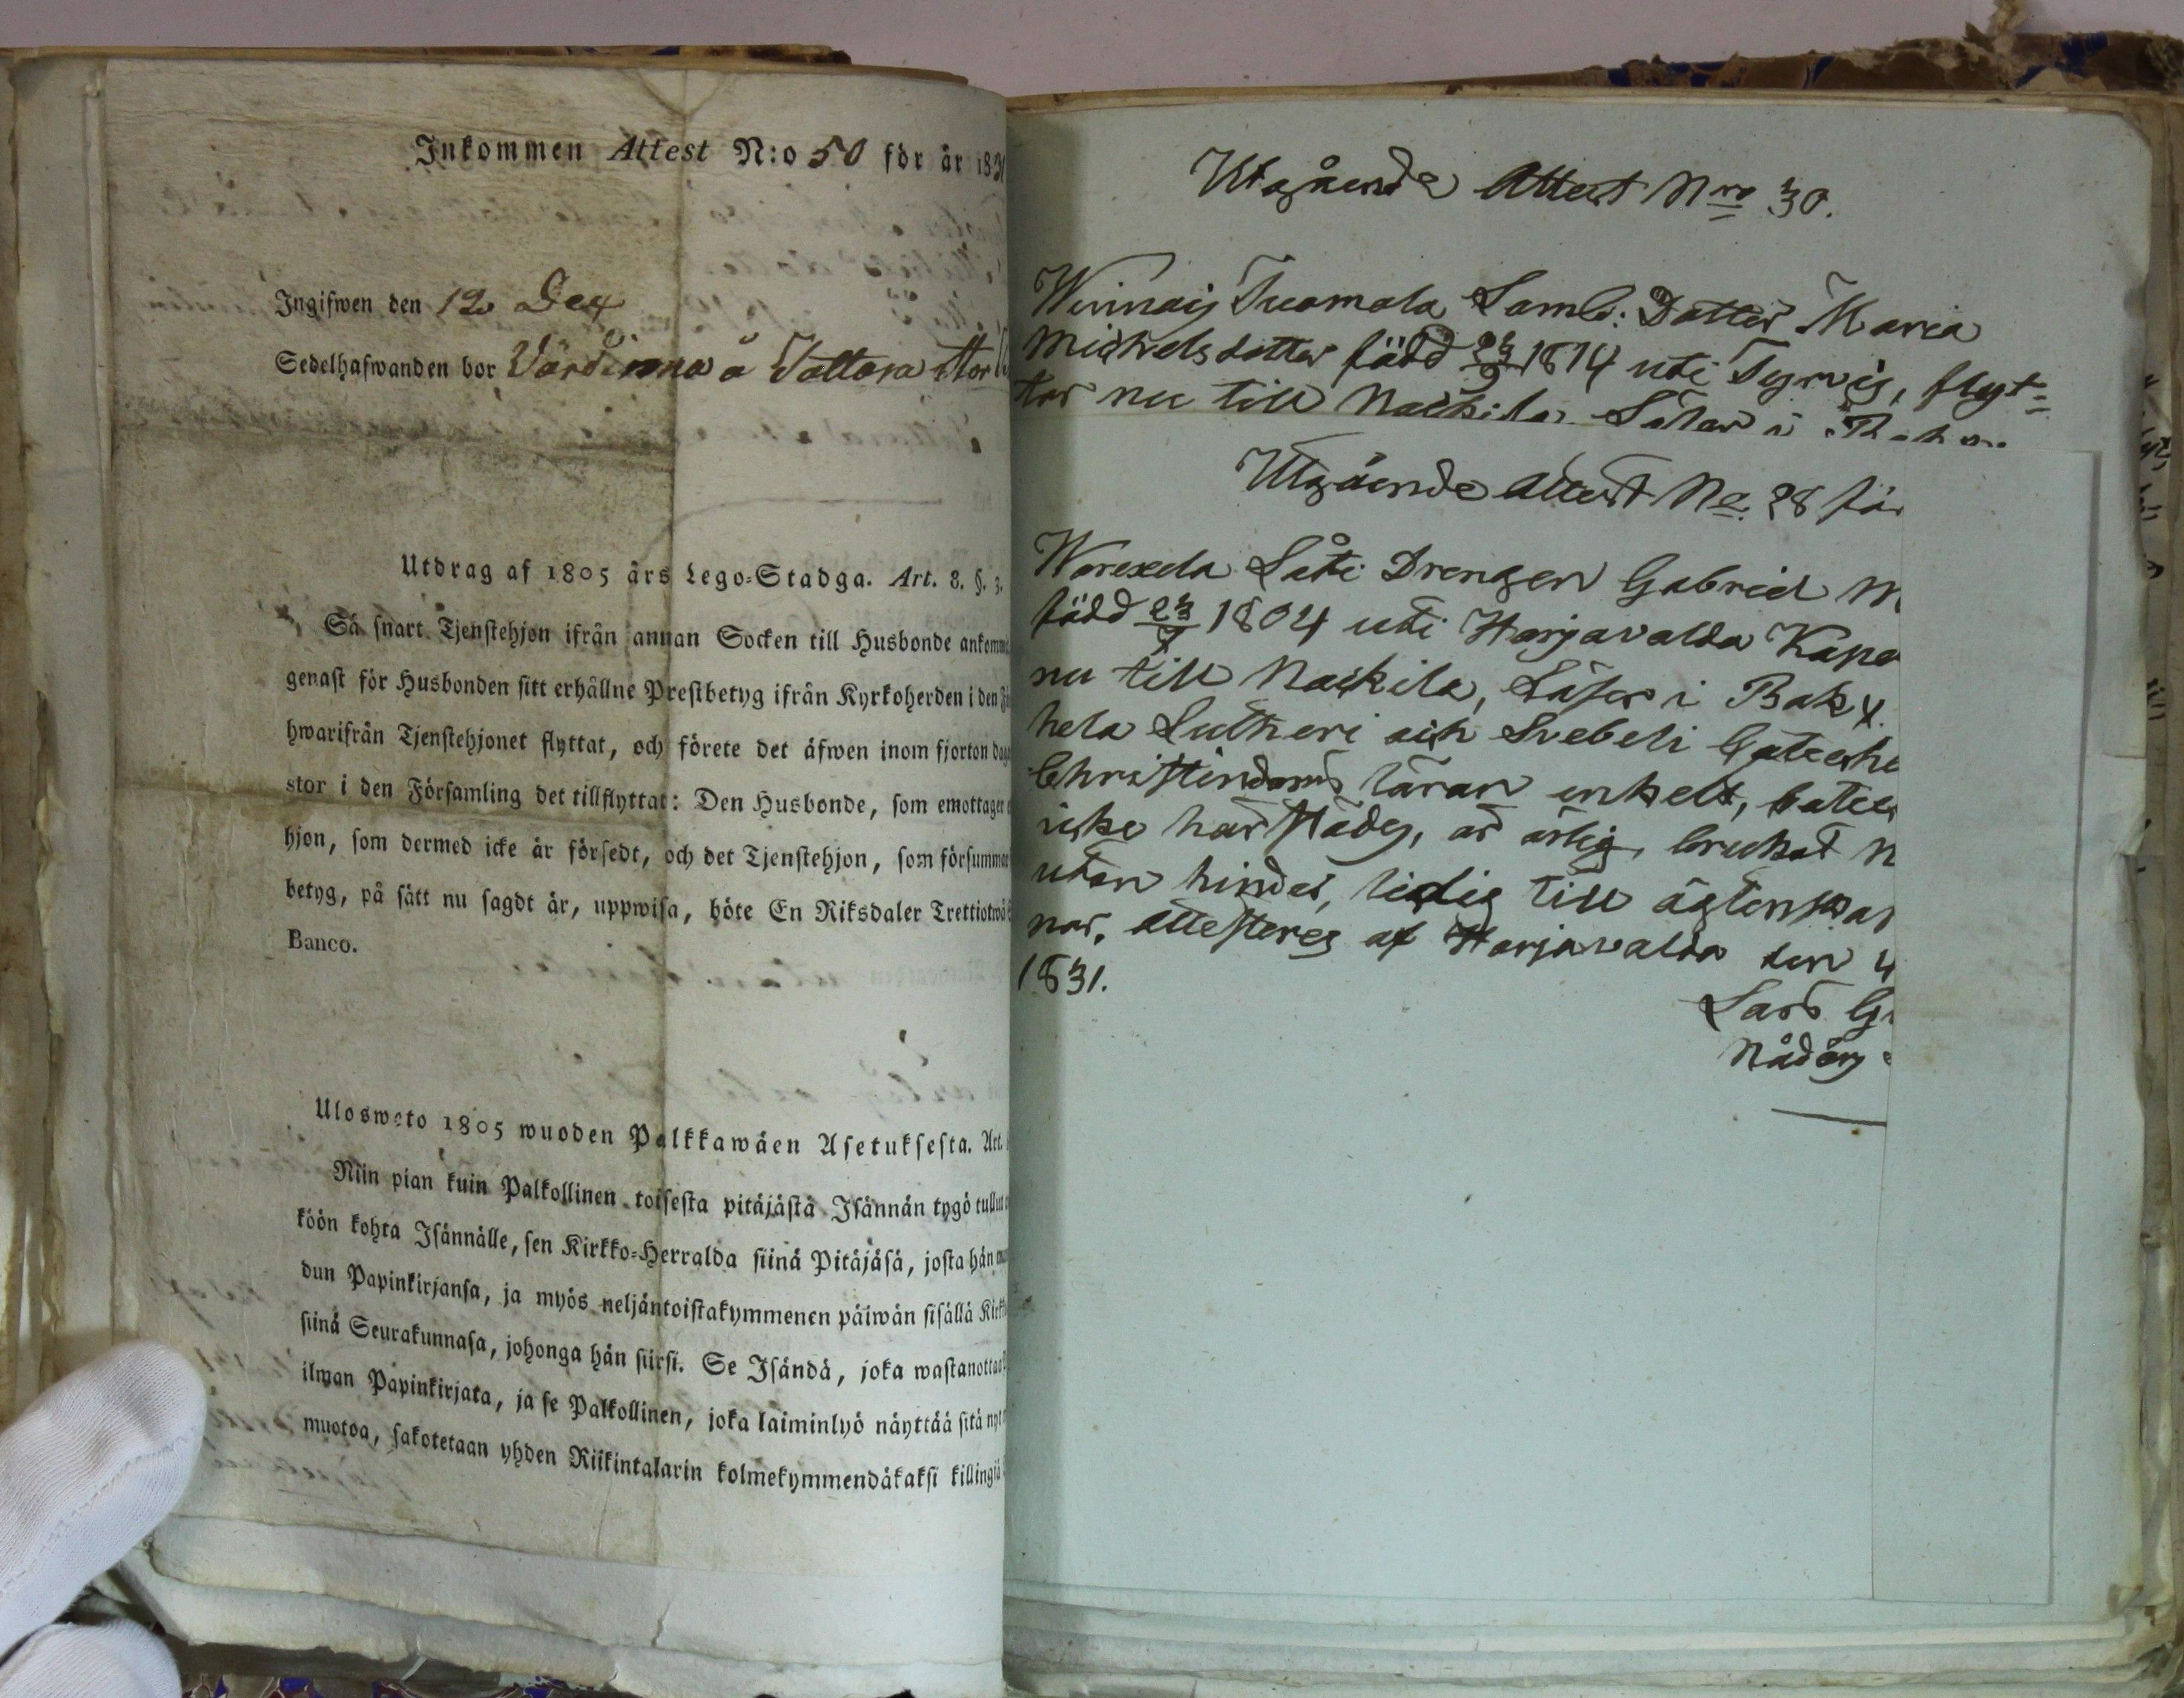 Inkommen Attest N:o 50 för år 183
Ingifwen den 12 Dec
Sedelhafwanden bor Värdinna å Vattara
Utdrag af 1805 års Lego-Stadga. Art. 8. §. 3.
Så snart Tjenstehjon ifrån annan Socken till Husbonde ankomm
genast för Husbonden sitt erhållne Prestbetyg ifrån Kyrkoherden i den
hwarifrån Tjenstehjonet flyttat, och förete det äfwen inom fjorton dag
stor i den Församling det tillflyttat: Den Husbonde, som emottager
hjon, som dermed icke är försedt, och det Tjenstehjon, som försummar
betyg, på sätt nu sagdt är, uppwisa, böte En Riksdaler Trettiotwå
Banco.
Ulosweto 1805 wuoden Palkkawäen Asetuksesta. Art.
Niin pian kuin Palkollinen toisesta pitäjästä Isännän tygö tullut
köön kohta Isännälle, sen Kirkko-Herralda siinä Pitäjäsä, josta hän
dun Papinkirjansa, ja myös neljäntoistakymmenen päiwän sisällä Kirk
siinä Seurakunnasa, johonga hän siirsi. Se Isändä, joka wastanottaa
ilman Papinkirjata, ja se Palkollinen, joka laiminlyö näyttää sitä nyt
muotoa, sakotetaan yhden Riikintalarin kolmekymmendäkaksi killingiä
Utgående Attest Nro 30.
Tuomola Daotter Maria
Michelsdotter född 24/9 1814 uti Tyrvis, flyt=
tar nu till Nackila Läser i
Utgående Attest No 28 för
Låti Drengen Gabriel M
född 23/7 1804 uti Harjavalda Kape
nu till Nackila, Läser i Bok
hela Lutheri och Svebeli Cateche
Christindoms läran enkelt,
icke härstädes, är ärlig, brukat N
utan hinder, ledig till ägtenskap
nar, attesteras af Harjavalda den 4
1831.
Lars G
Nådårs